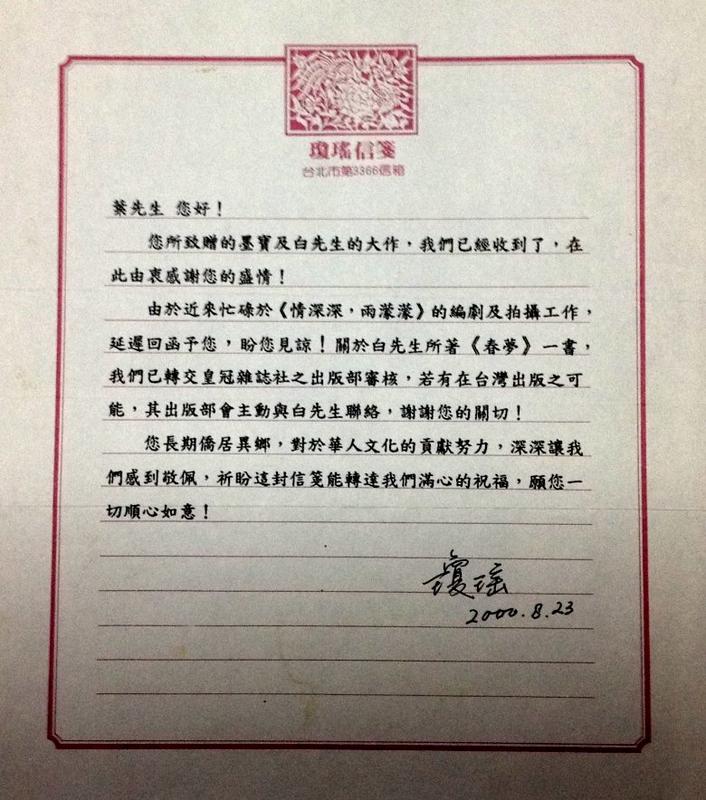 瓊瑤信箋
台北市第3366信箱
葉先生 您好！
您所致贈的墨寶及白先生的大作，我們已經收到了，在
此由衷感謝您的盛情！
由於近來忙碌於《情深深，雨濛濛》的編劇及拍攝工作，
延遲回函予您，盼您見諒！關於白先生所著《春夢》一書，
我們已轉交皇冠雜誌社之出版部審核，若有在台灣出版之可
能，其出版部會主動與白先生聯絡，謝謝您的關切！
您長期僑居異鄉，對於華人文化的貢獻努力，深深讓我
們感到敬佩，祈盼這封信箋能轉達我們滿心的祝福，願您一
切順心如意！
瓊瑤
2000.8.23